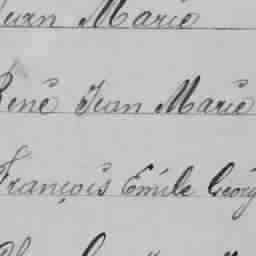 Jean Marie
René Jean Marie
François Emile Georg